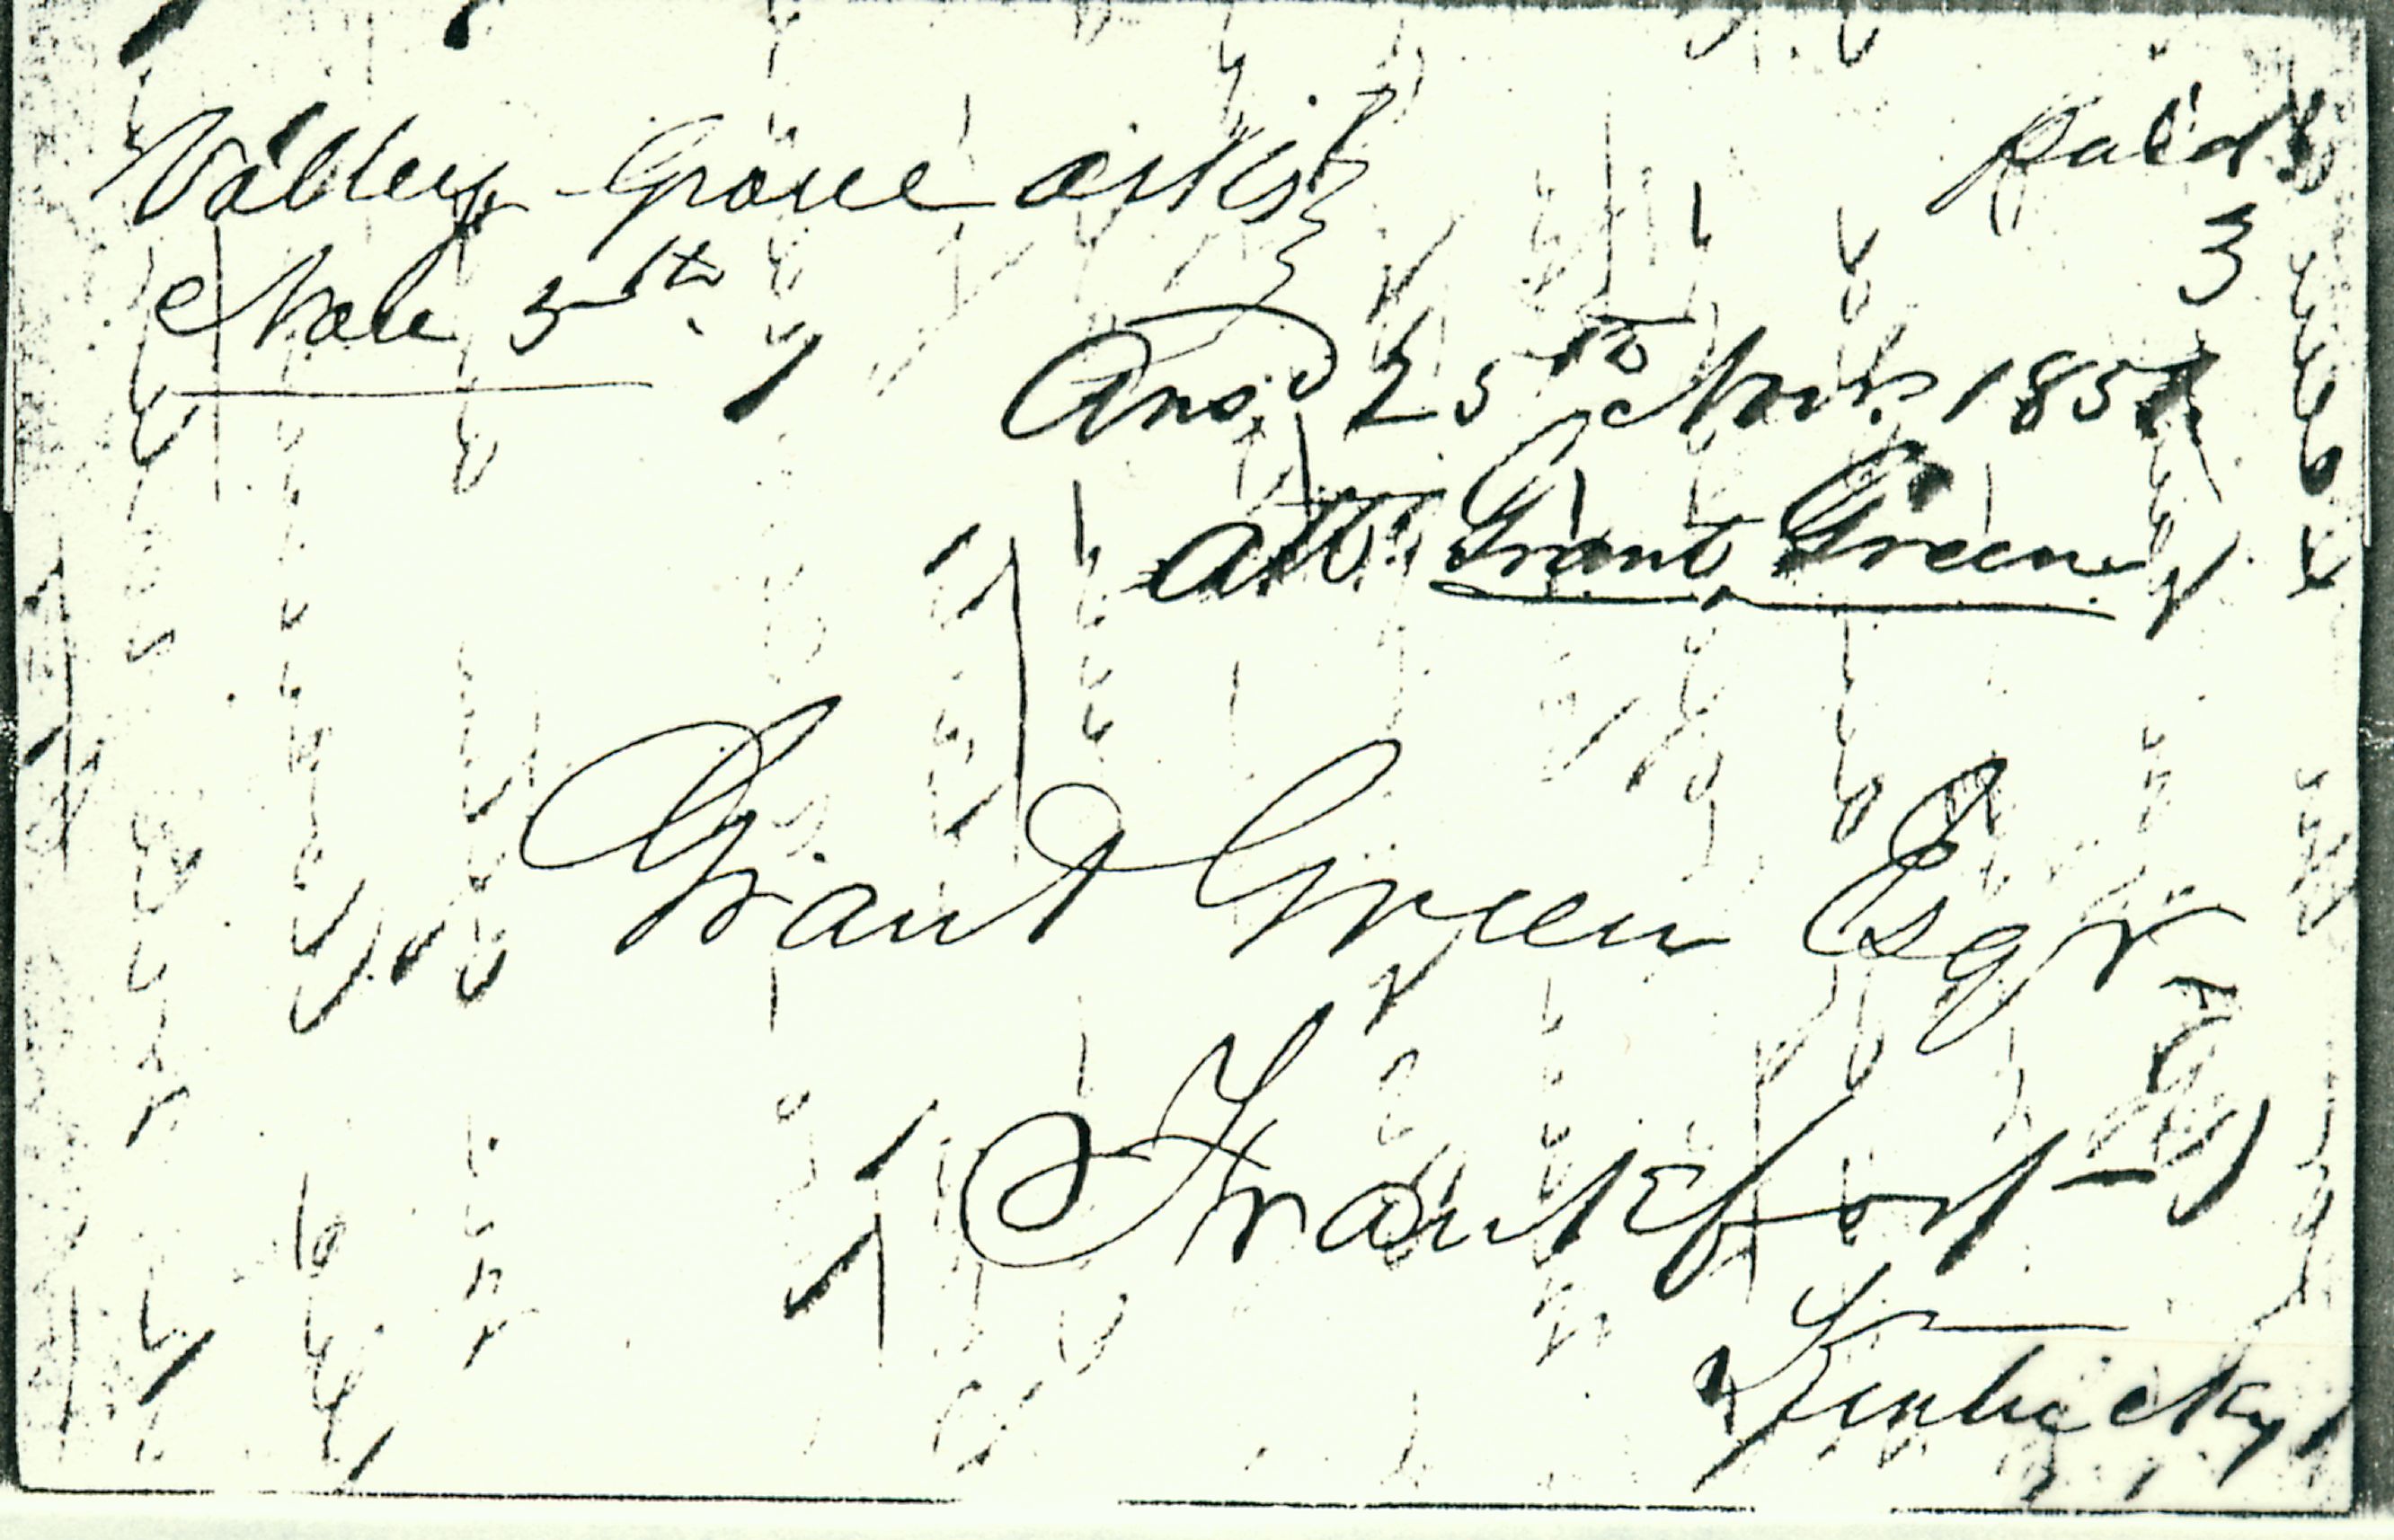 Valley Grove arks
paid
3
Nov 5th
Ansd 25th Novr. 185
att. Grant Green
Grant Green Esqr
Frankfort
Kentucky